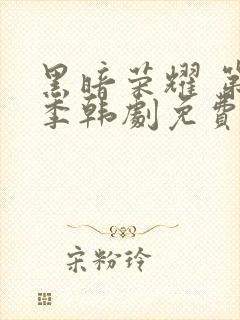 黑暗荣耀 第
季韩劇免費
宋粉玲